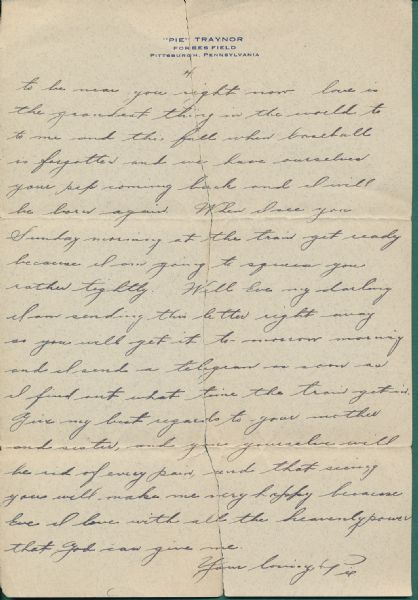 "PIE" TRAYNOR
FORBES FIELD
PITTSBURGH, PENNSYLVANIA
4
to be near you right now love is
the grandest thing in the world to
to me and this fall when baseball
is forgotten and we have ourselves
your pep coming back and I will
be born again When I see you
Sunday morning at the train get ready
because I am going to squeeze you
rather tightly. Well Eve my darling
I am sending this letter right away
so you will get it to-morrow morning
and I send a telegram as soon as
I find out what time the train gets in.
Give my best regards to your mother
and sister, and you yourselve will
be rid of every pain, and that seeing
you will make me very happy because
Eve I love with all the heavenly power
that God can give me.
Your loving Pie